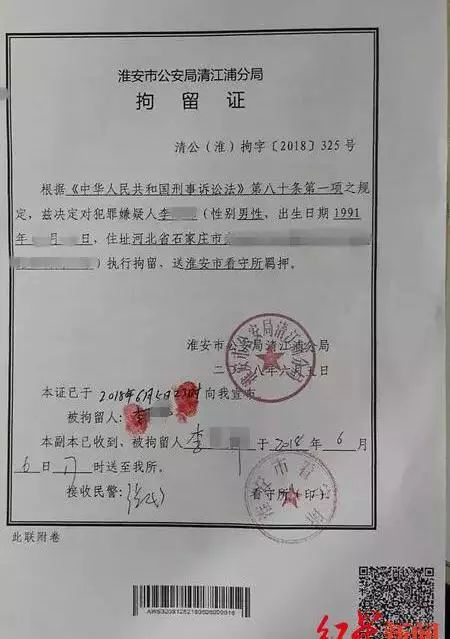 淮安市公安局清江浦分局
拘留证
清公（淮）拘字〔2018〕325号
根据《中华人民共和国刑事诉讼法》第八十条第一项之规
定，兹决定对犯罪嫌疑人李（性别男性，出生日期1991
年月日，住址河北省石家庄市
）执行拘留，送淮安市看守所羁押。
淮安市公安局清江浦分局
二八年六月五日
淮安市公安局清江浦分局
本证已于2018年6月5日23时向我宣布。
被拘留人：李
本副本已收到，被拘留人李于2018年6月
6日17时送至我所。
接收民警：
看守所（印）
此联附卷
红星新闻